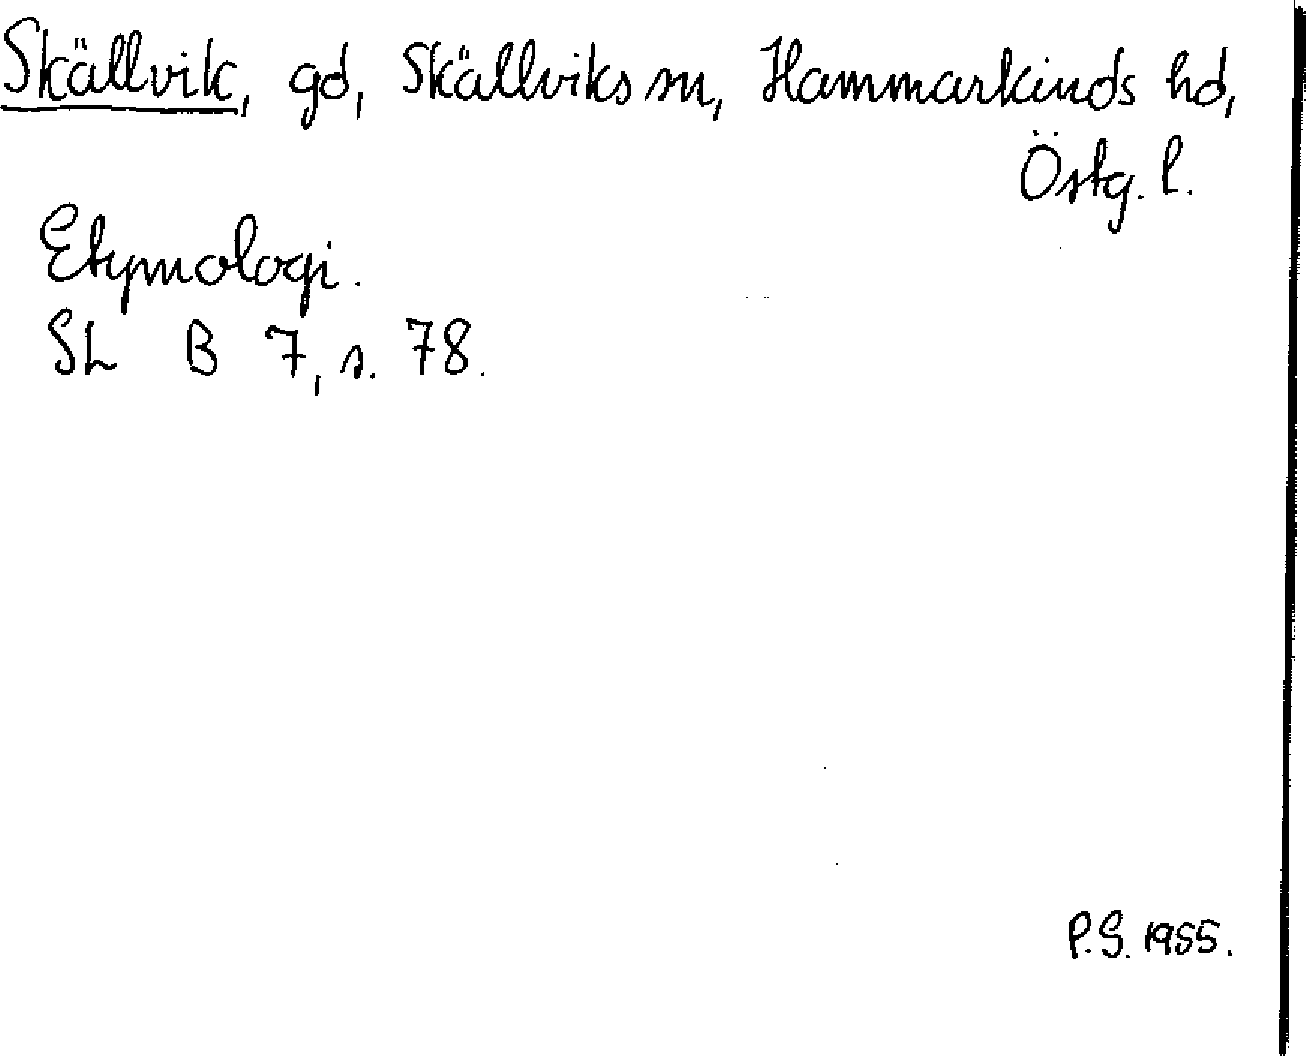 Skällvik, gd, Skällviks sn, Hammarkinds hd,
Östg. l.
Etymologi.
SL B 7, s. 78.
P.G. 1955.